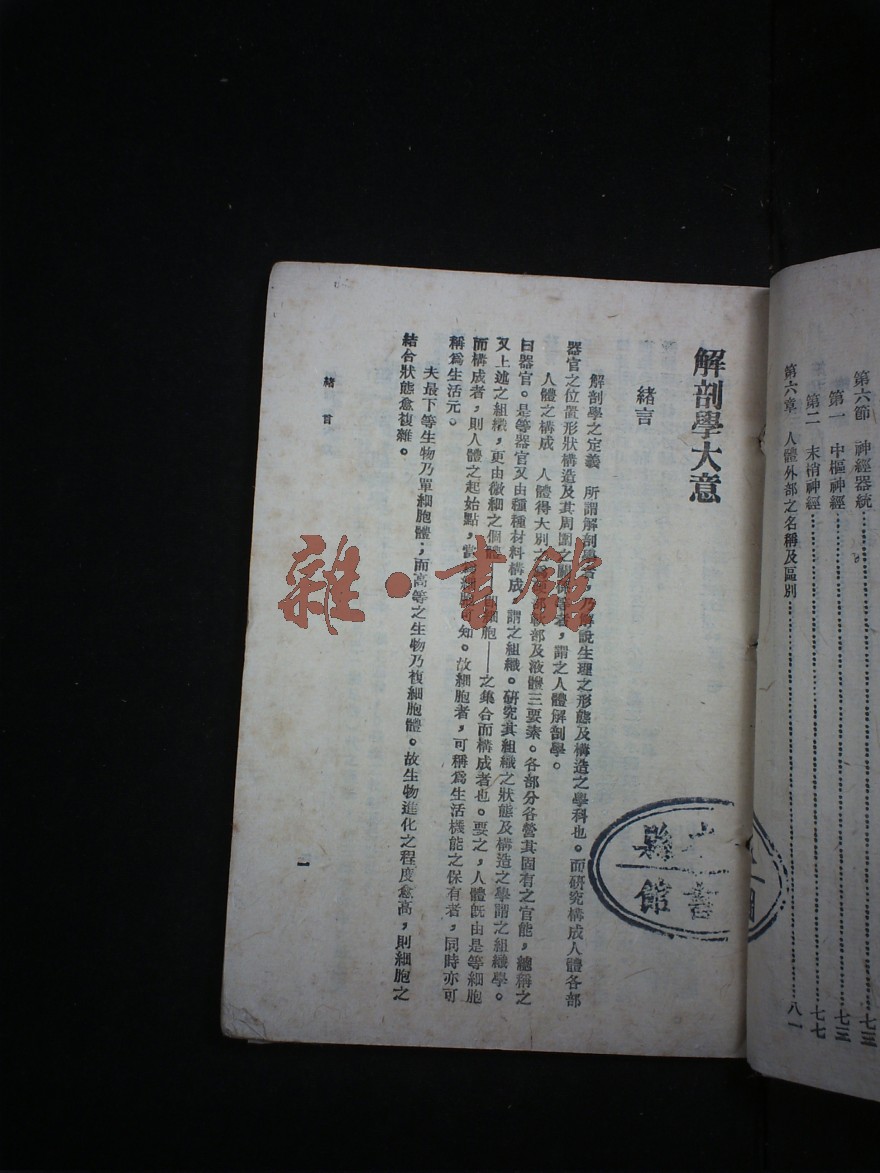 第六節　神經器統……七三
第一　中樞神經……七三
第二　末梢神經……七七
第六章　人體外部之名稱及區別……八一
解剖學大意
緒言
解剖學之定義　所謂解剖學者，說生理之形態及構造之學科也。而研究構成人體各部
器官之位置形狀構造及其周圍之關係者，謂之人體解剖學。
人體之構成　人體得大別之軟部及液體三要素。各部分各營其固有之官能，總稱之
曰器官。是等器官又由種種材料構成，謂之組織。研究其組織之狀態及構造之學謂之組織學。
又上述之組織，更由微細之個體——細胞——之集合而構成者也。要之，人體既由是等細胞
而構成者，則人體之起始點，當細胞可知。故細胞者，可稱爲生活機能之保有者，同時亦可
稱爲生活元。
夫最下等生物乃單細胞體；而高等之生物乃複細胞體。故生物進化之程度愈高，則細胞之
結合狀態愈複雜。
緒言
一
雜·書館
縣
書
館